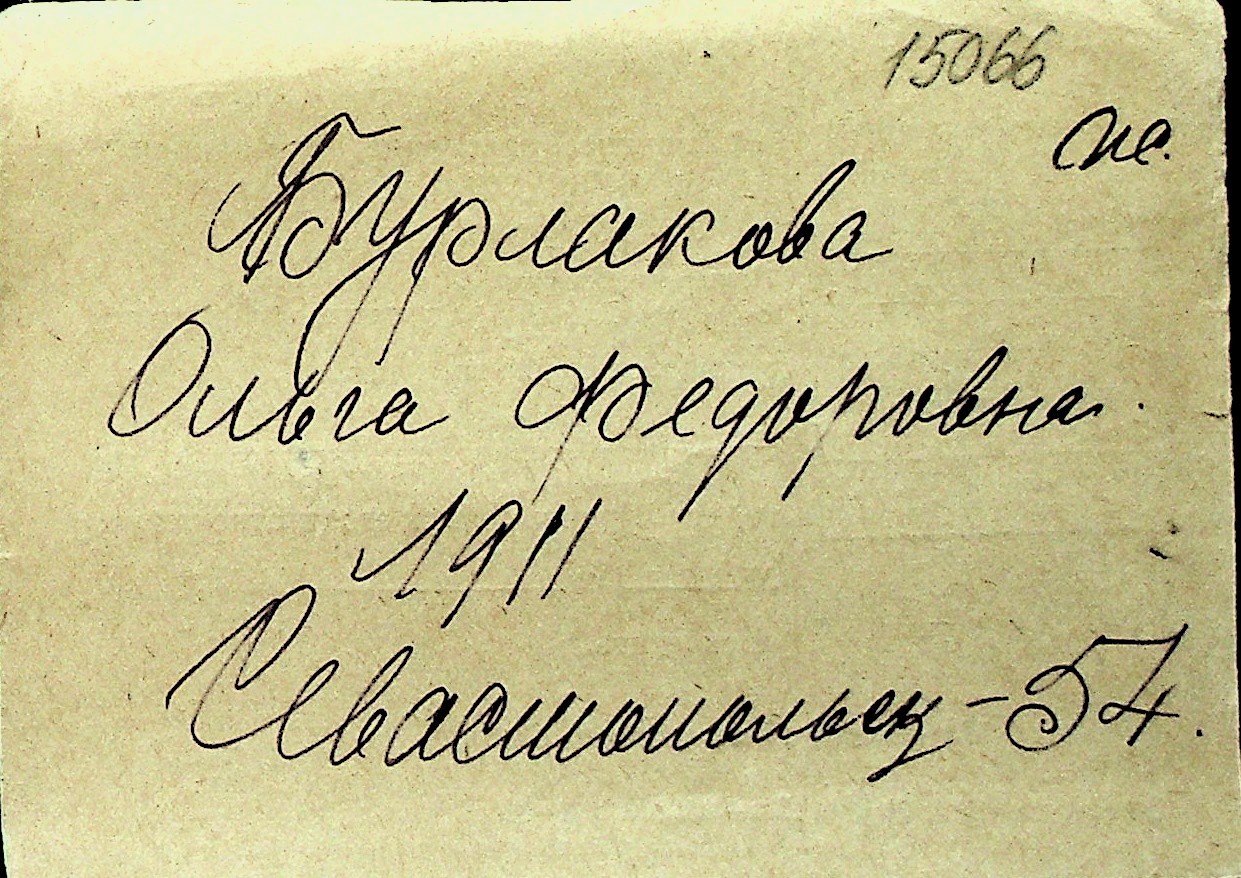 15066
Бурлакова
Ольга Федоровна
1911
Севастопольск - 54.